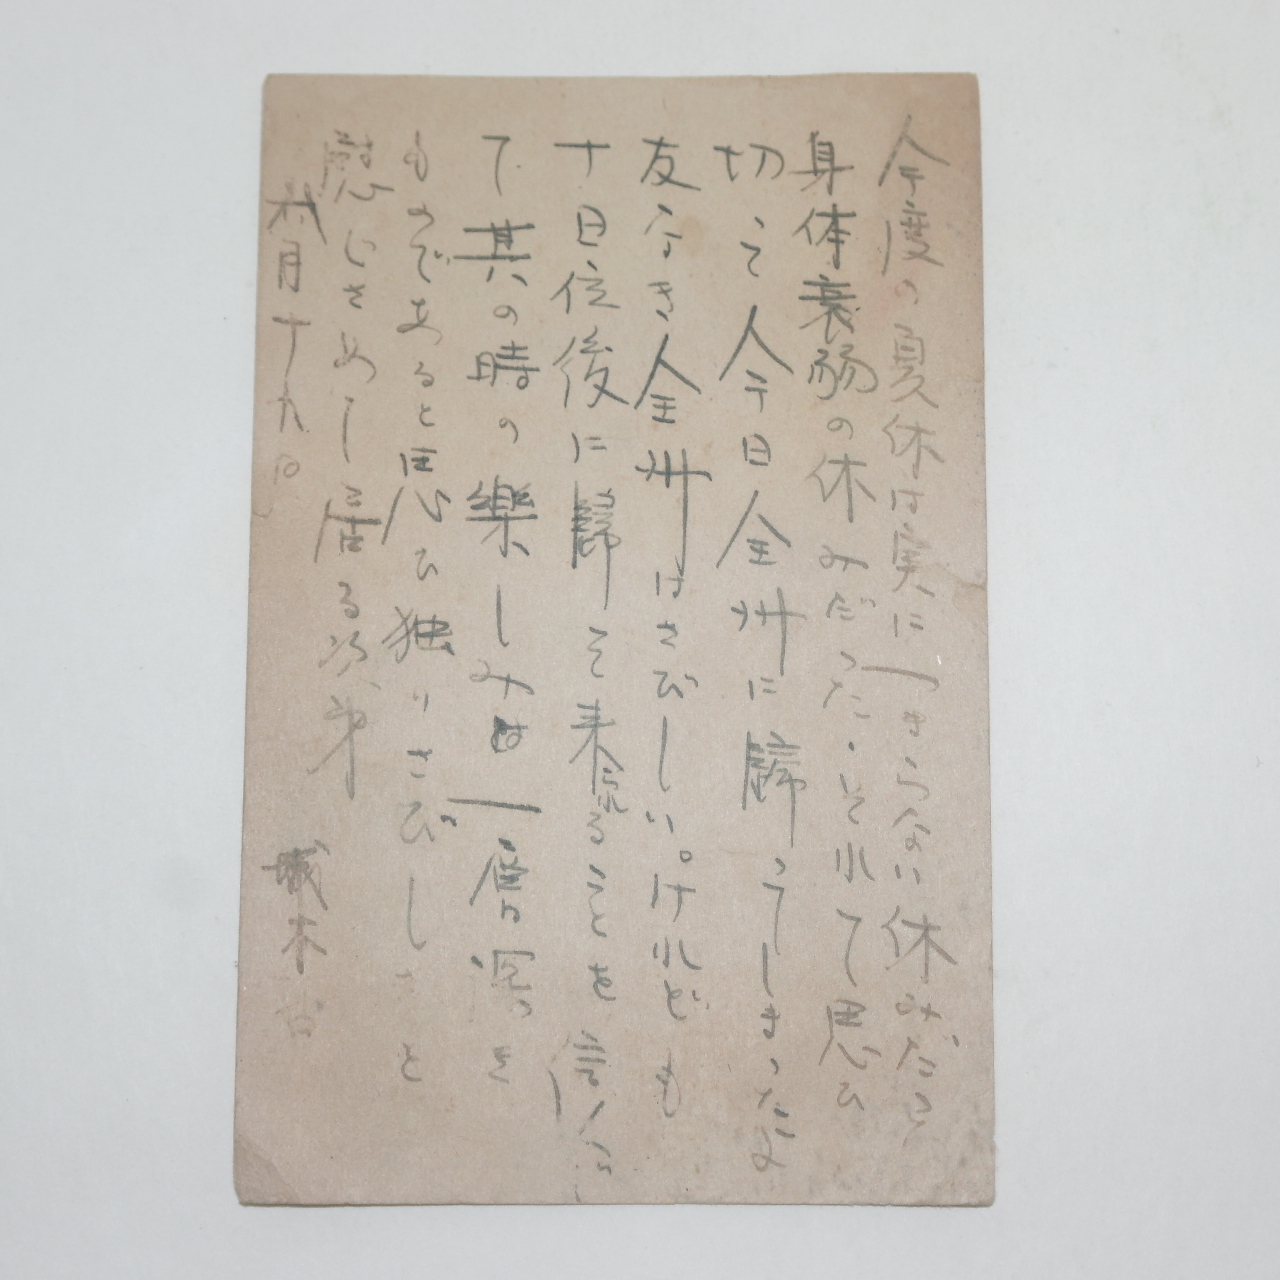 今度の夏休は実につまらない休みだつた
身体衰弱の休みだつた.それて思ひ
切って今日全州に歸ってしまったよ
友なき全州はさびしい。けれども
十日位後に歸って来られることを信じ
て其の時の樂しみは一層深き
ものであると思ひ独りさびしさと
慰じさめし居る次第
月十九日 城木